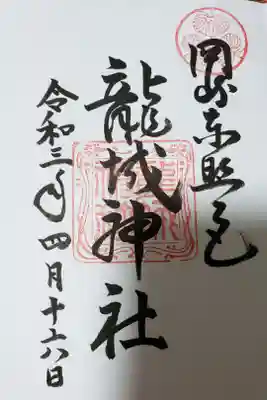 岡崎東照宮
龍城神社
令和三年四月十六日